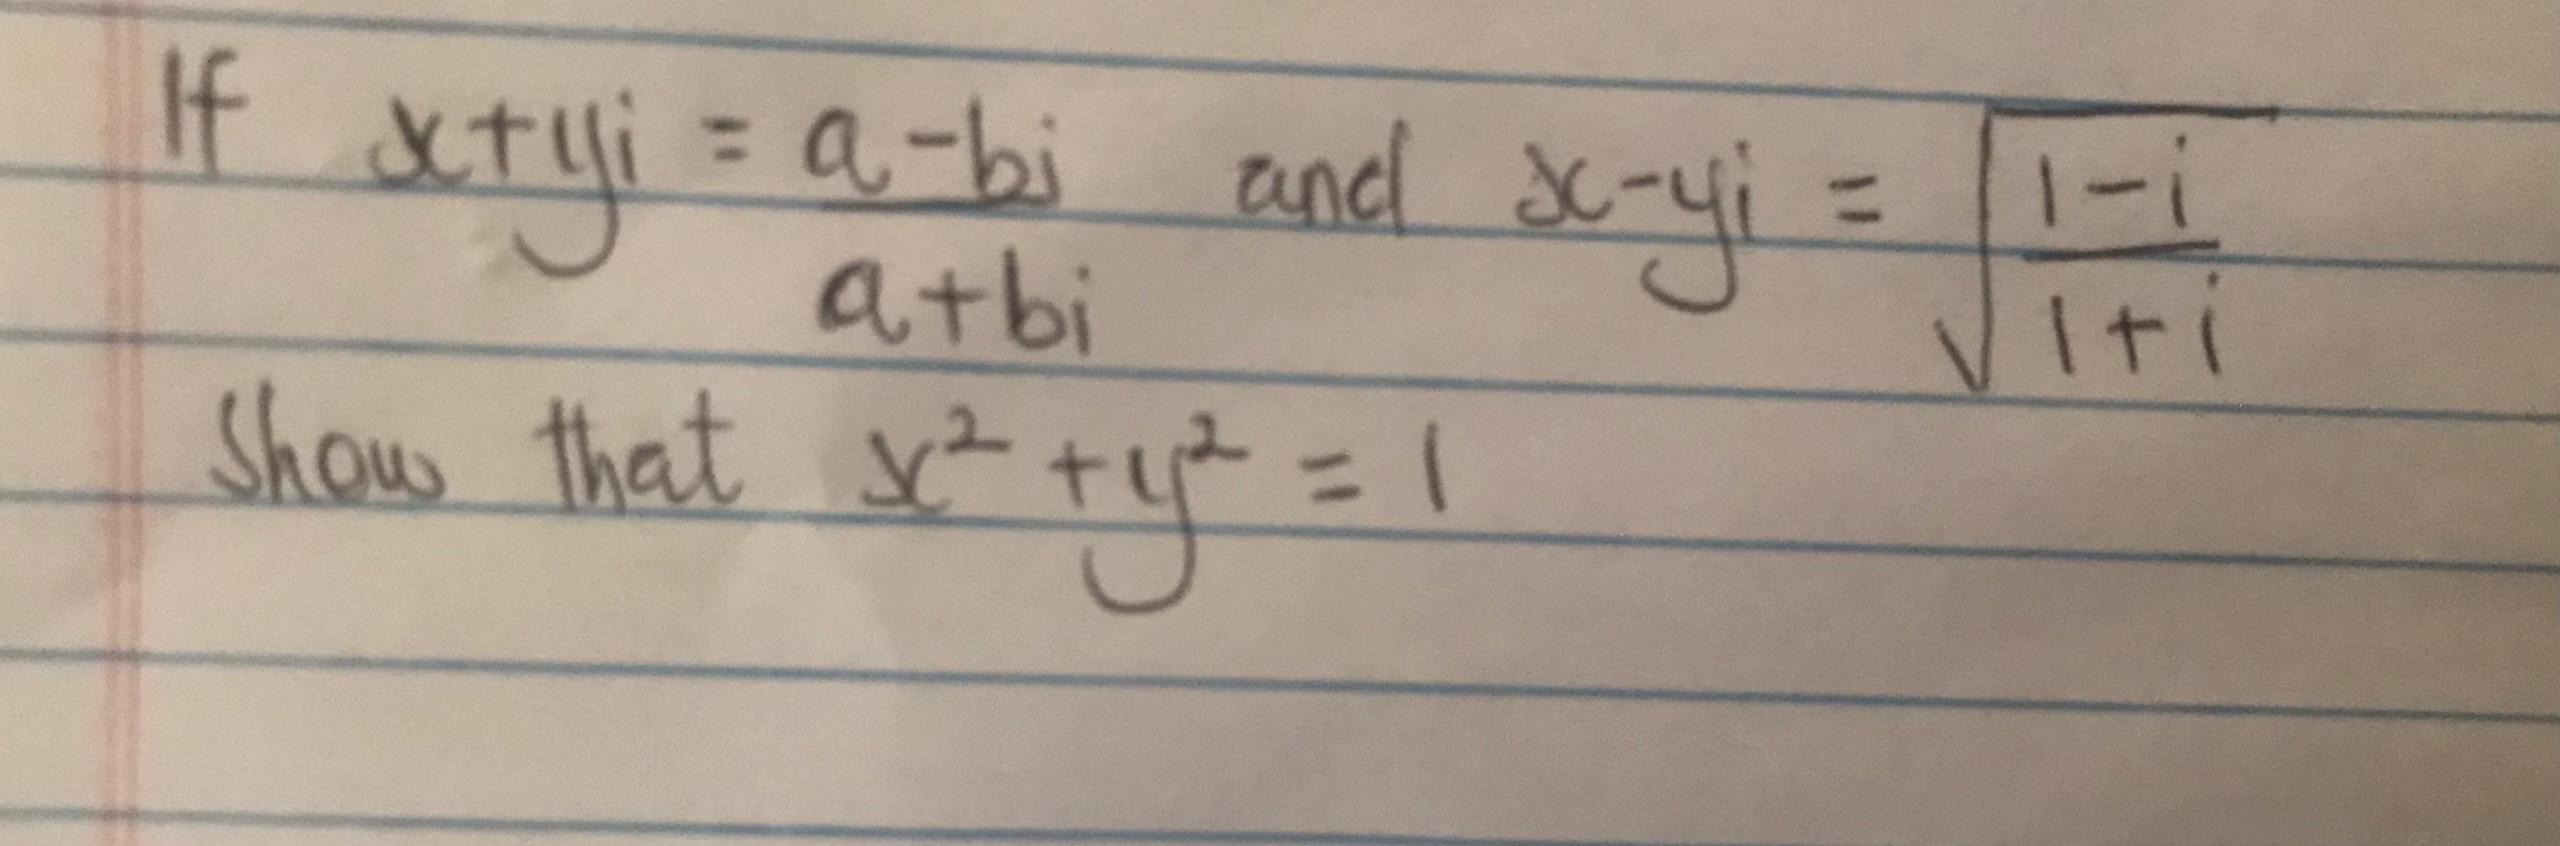 If x+yi = \frac{a-bi}{a+bi} and x-yi = \sqrt{\frac{1-i}{1+i}}
Show that x² + y² = 1